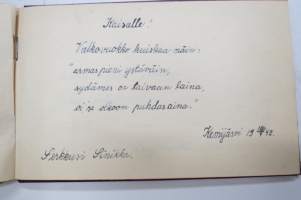 Kaisalle!
Valkovuokko kuiskaa näin:
"armas pieni ystäväin,
sydämes on taivaan laina,
se'se olkoon puhdas aina."
Kemijärvi 19 48.
Serkkusi Sinikka.